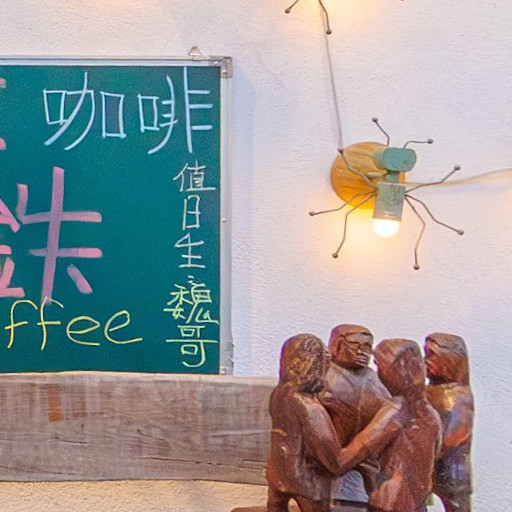 咖啡
鉄
ffee
值日生:魏哥